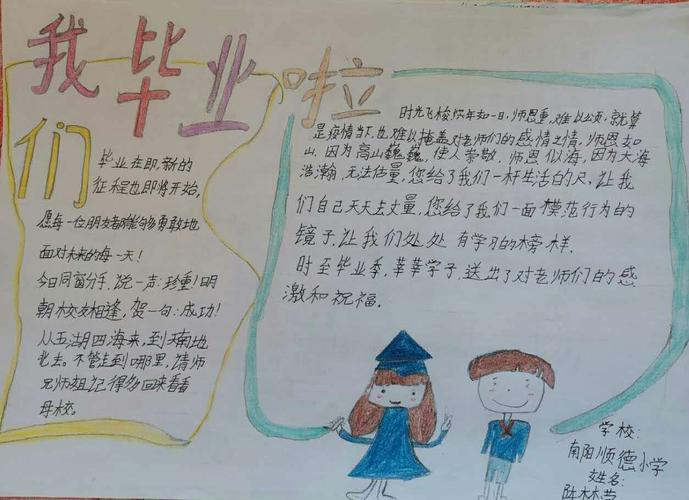 我毕业啦
们
毕业在即,新的
征程也即将开始,
愿每一位朋友都能够勇敢地
面对未来的每一天!
今日同窗分手,说一声:珍重!明
朝校友相逢,贺一句:成功!
从五湖四海来,到天南地
北去。不管走到哪里,请师
兄师姐记得多回来看看
母校。
时光飞梭,你年如一日,师恩重,难以公颂,就算
是疫情当下,也难以掩盖对老师们的感情之情,师恩如
山,因为高山巍巍,使人崇敬,师恩似海,因为大海
浩瀚,无法估量,您给了我们一杆生活的尺,让我
们自己天天去丈量,您给了我们一面模范行为的
镜子,让我们处处有学习的榜样.
时至毕业季,莘莘学子,送出了对老师们的感
激和祝福.
学校:
南阳顺德小学
姓名: